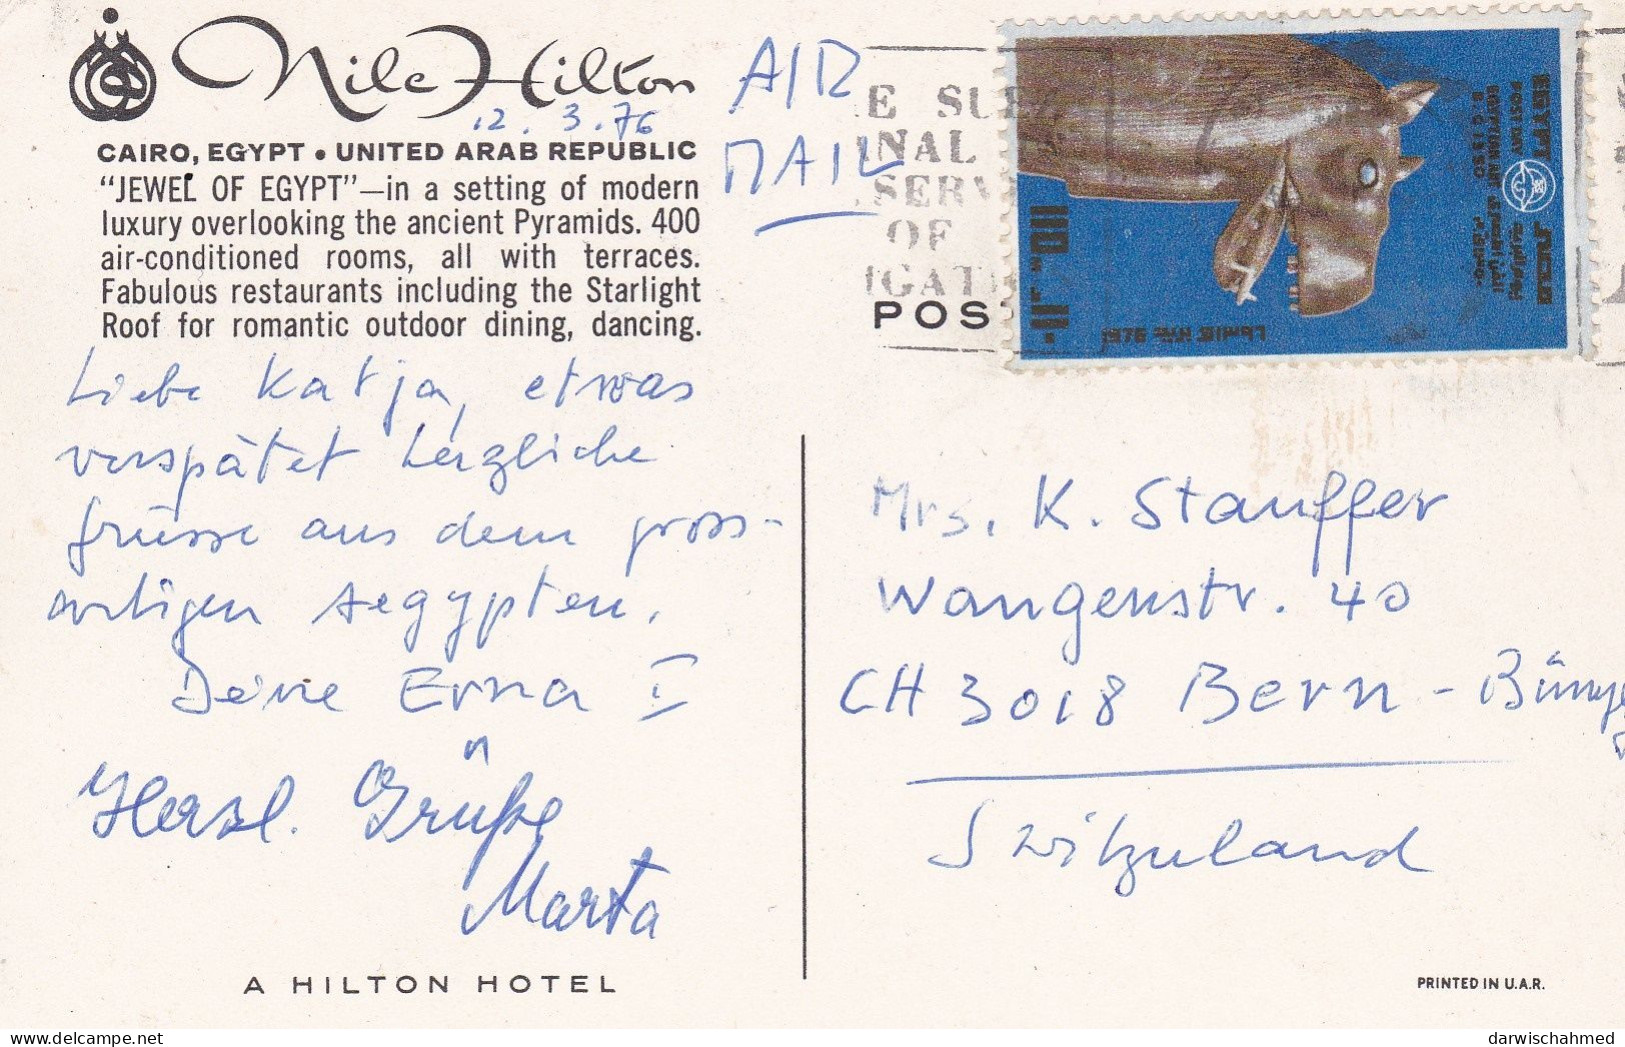 Nile Hilton
12. 3. 76
CAIRO, EGYPT • UNITED ARAB REPUBLIC
“JEWEL OF EGYPT”—in a setting of modern
luxury overlooking the ancient Pyramids. 400
air-conditioned rooms, all with terraces.
Fabulous restaurants including the Starlight
Roof for romantic outdoor dining, dancing.
Liebe Katja, etwas
verspätet herzliche
Grüsse aus dem gross-
artigen Aegypten.
Deine Erna I
Herzl. Grüße
Marta
A HILTON HOTEL
AIR
MAIL
E SU
NAL
SERV
OF
IGAT
POS
EGYPT
POST DAY
EGYPTIAN ART
B.C 1350
110
Mrs. K. Stauffer
Wangenstr. 40
CH 3018 Bern - Bümp
Switzuland
PRINTED IN U.A.R.
darwischahmed